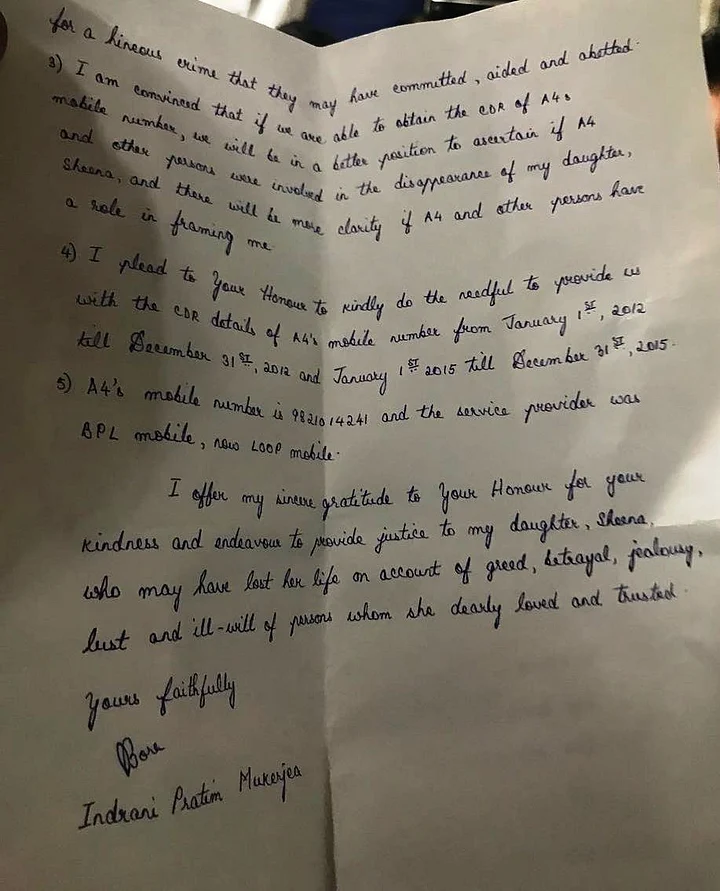 for a hineous crime that they may have committed, aided and abetted.
3) I am convinced that if we are able to obtain the CDR of A4's
mobile number, we will be in a better position to ascertain if A4
and other persons were involved in the disappearance of my daughter,
Sheena, and there will be more clarity if A4 and other persons have
a role in framing me.
4) I plead to Your Honour to kindly do the needful to provide us
with the CDR details of A4's mobile number from January 1ST, 2012
till December 31ST, 2012 and January 1ST 2015 till December 31ST, 2015.
5) A4's mobile number is 9821014241 and the service provider was
BPL mobile, now LOOP mobile.
I offer my sincere gratitude to Your Honour for your
kindness and endeavour to provide justice to my daughter, Sheena,
who may have lost her life on account of greed, betrayal, jealousy,
lust and ill-will of persons whom she dearly loved and trusted.
Yours faithfully
Bora
Indrani Pratim Mukerjea